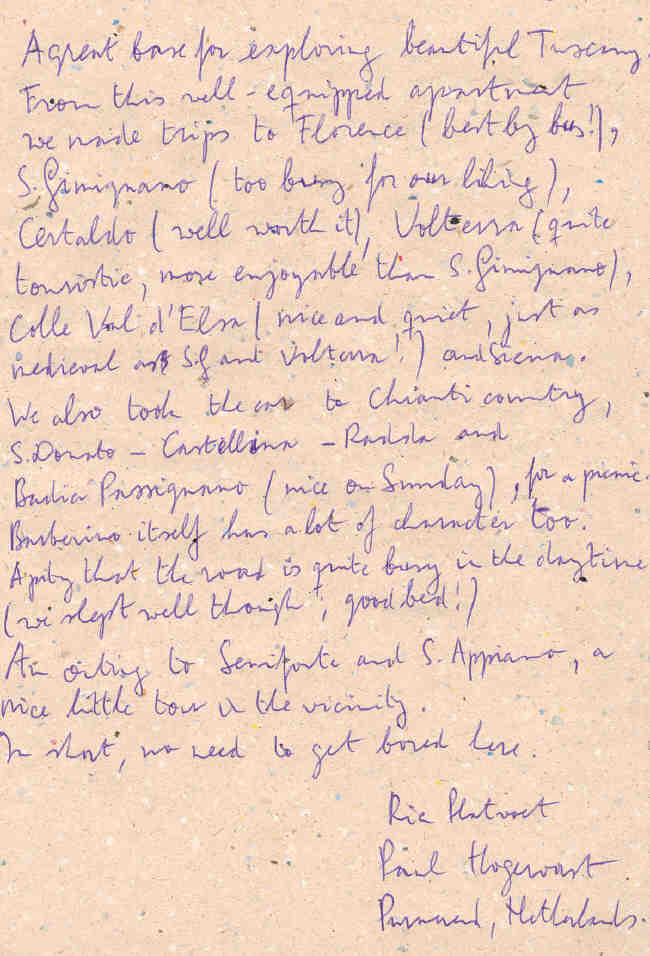 A great base for exploring beautiful Tuscany.
From this well-equipped apartment
we made trips to Florence (best by bus!),
S. Gimignano (too busy for our liking),
Certaldo (well worth it), Volterra (quite
touristic, more enjoyable than S. Gimignano),
Colle Val d'Elsa (nice and quiet, just as
medieval as S.G and Volterra!) and Siena.
We also took the car to Chianti country,
S. Donato - Castellina - Radda and
Badia Passignano (nice on Sunday), for a picnic.
Barberino itself has a lot of character too.
A pity that the road is quite busy in the daytime
(we slept well though, good bed!)
An outing to Semifonte and S. Appiano, a
nice little tour in the vicinity.
In short, no need to get bored here.
Ria
Paul Hogervorst
Purmerend, Netherlands.